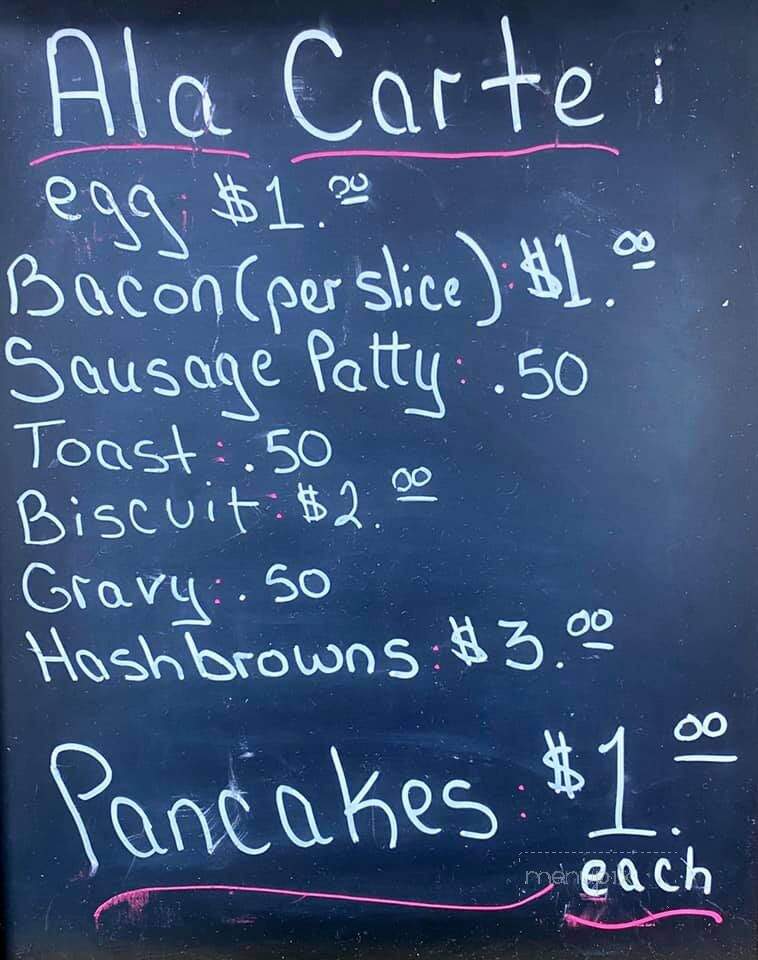 Ala Carte :
egg: $1.00
Bacon (per slice): $1.00
Sausage Patty: .50
Toast: .50
Biscuit: $2.00
Gravy: .50
Hashbrowns: $3.00
Pancakes: $1.00
each
menupix